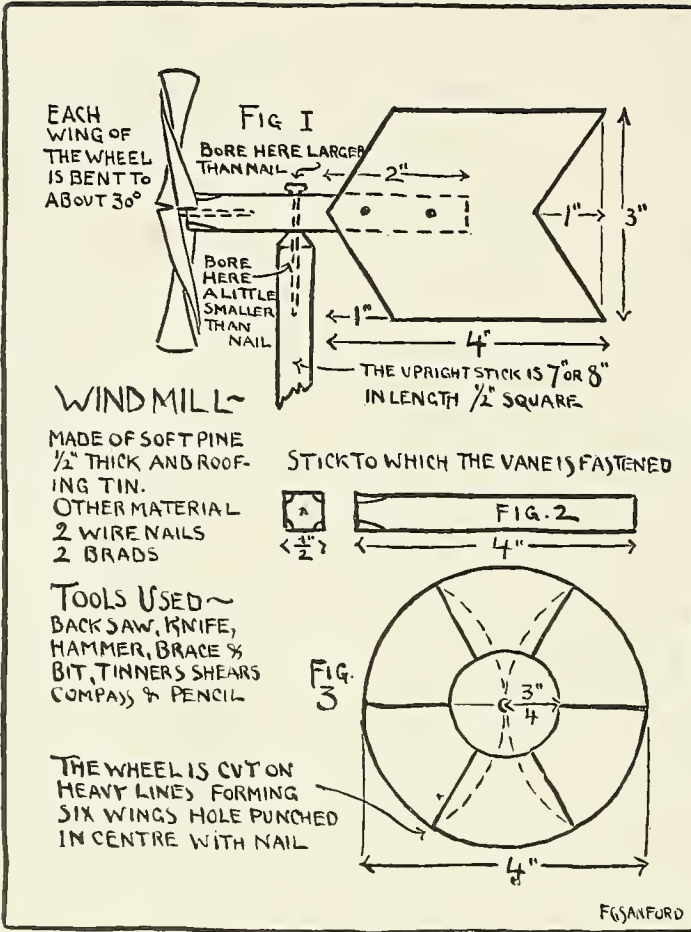 EACH
WING OF
THE WHEEL
IS BENT TO
ABOUT 30°
FIG I
BORE HERE LARGER
THAN NAIL
2"
1"
3"
BORE
HERE
A LITTLE
SMALLER
THAN
NAIL
1"
4"
THE UPRIGHT STICK IS 7" OR 8"
IN LENGTH 1/2" SQUARE
WINDMILL~
MADE OF SOFT PINE
1/2" THICK AND ROOF-
ING TIN.
OTHER MATERIAL
2 WIRE NAILS
2 BRADS
STICK TO WHICH THE VANE IS FASTENED
FIG. 2
1/2"
4"
TOOLS USED~
BACK SAW, KNIFE,
HAMMER, BRACE &
BIT, TINNERS SHEARS
COMPASS & PENCIL
FIG.
3
3/4"
THE WHEEL IS CUT ON
HEAVY LINES FORMING
SIX WINGS HOLE PUNCHED
IN CENTRE WITH NAIL
4"
FGSANFORD